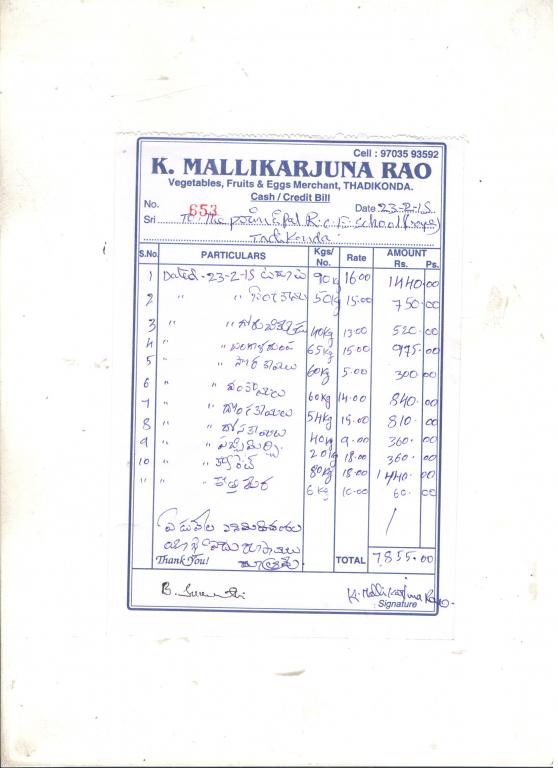 Cell : 97035 93592
K. MALLIKARJUNA RAO
Vegetables, Fruits & Eggs Merchant, THADIKONDA.
Cash / Credit Bill
No. 653 Date 23-2-15
Sri To The
Tadikonda
S.No. PARTICULARS Kgs/ No. Rate AMOUNT Rs. Ps.
1 Dated - 23-2-15 90 kg 16.00 1440.00
2 " " 50kg 15.00 750.00
3 " " 40kg 13.00 520.00
4 " " 65kg 15.00 975.00
5 " " 60kg 5.00 300.00
6 " " వంకాయలు 60kg 14.00 840.00
7 " " దొండకాయలు 54kg 15.00 810.00
8 " " దోసకాయలు 40kg 9.00 360.00
9 " " పచ్చిమిర్చి 20kg 18.00 360.00
10 " " 80kg 18.00 1440.00
" " " కొత్తిమీర 6 kg 10.00 60.00
ఏడువేల
Thank You! మాత్రమే TOTAL 7,855.00
B.
K. Mallikarjuna Rao.
Signature